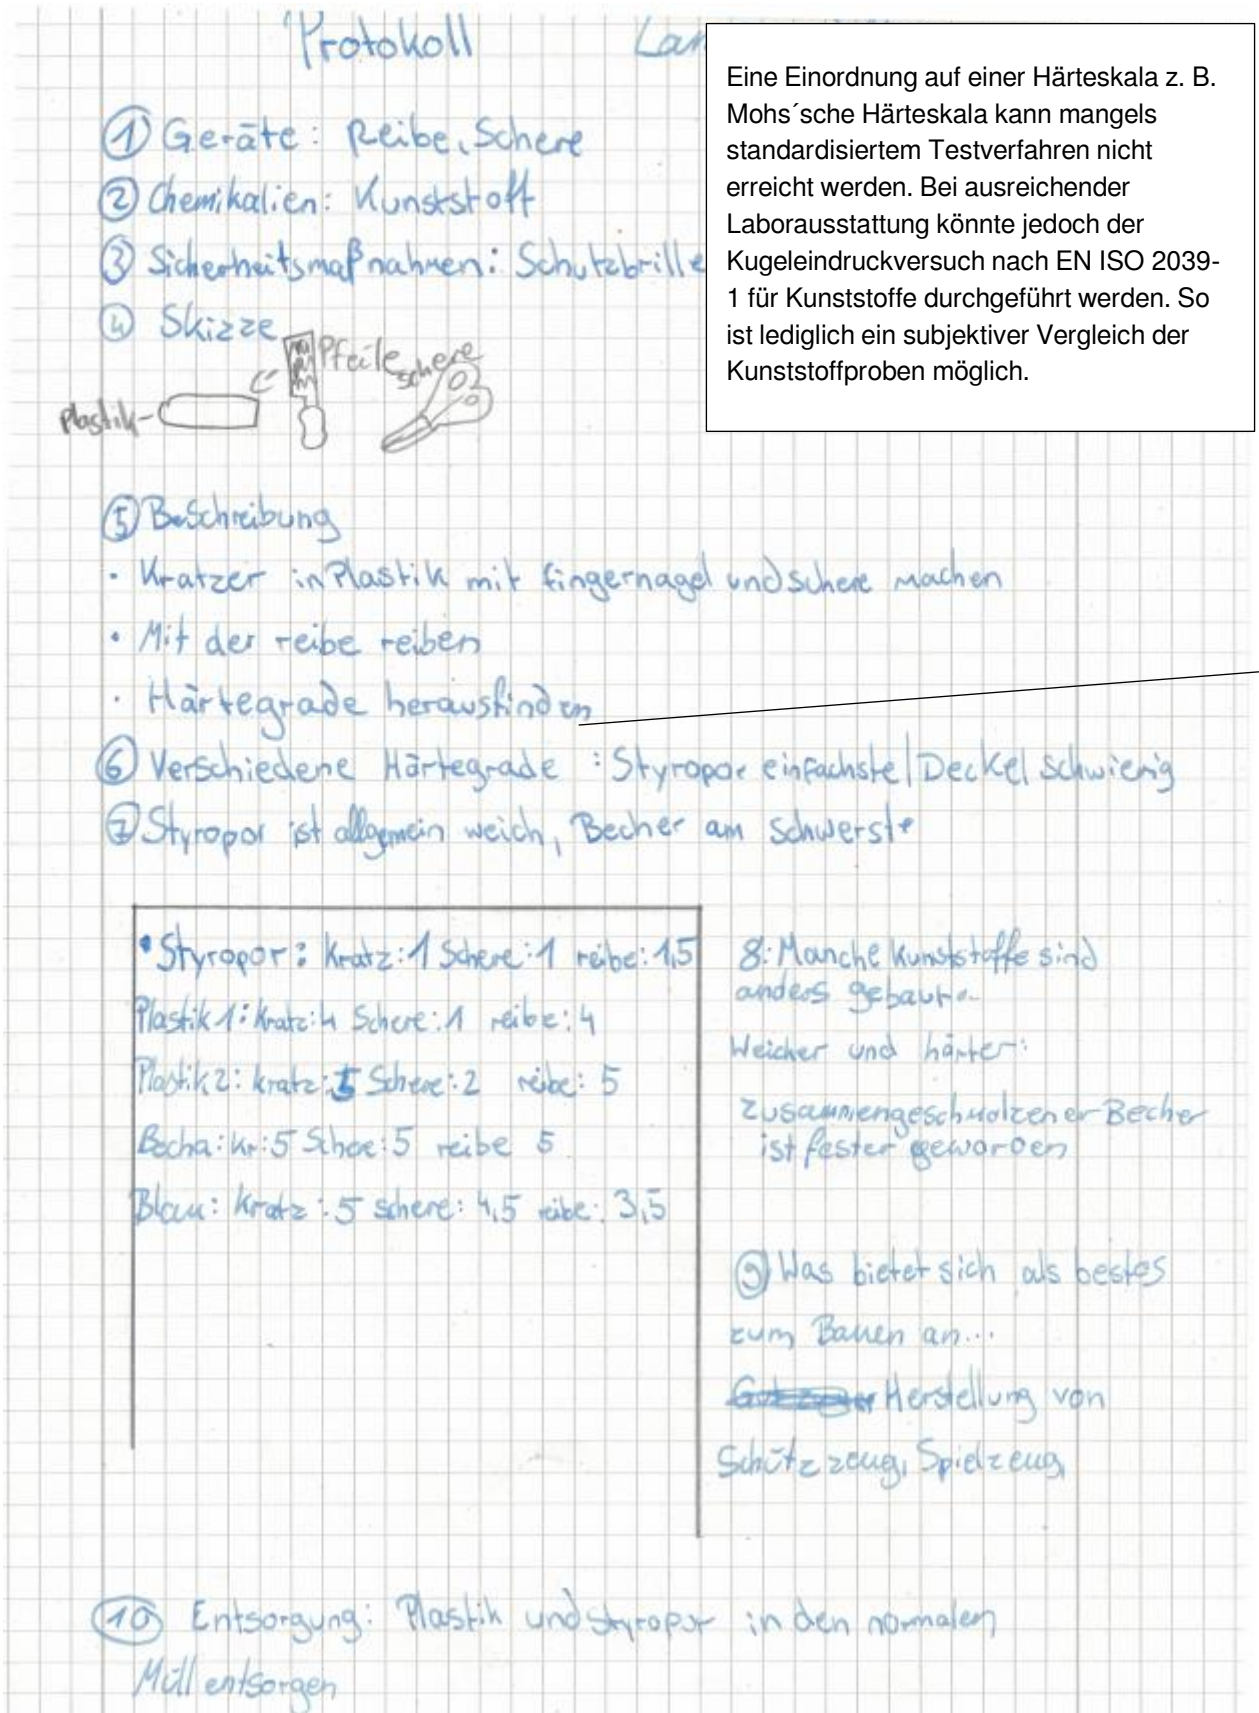 Protokoll
Eine Einordnung auf einer Härteskala z. B.
Mohs´sche Härteskala kann mangels
standardisiertem Testverfahren nicht
erreicht werden. Bei ausreichender
Laborausstattung könnte jedoch der
Kugeleindruckversuch nach EN ISO 2039-
1 für Kunststoffe durchgeführt werden. So
ist lediglich ein subjektiver Vergleich der
Kunststoffproben möglich.
① Geräte: Reibe, Schere
② Chemikalien: Kunststoff
③ Sicherheitsmaßnahmen: Schutzbrille
④ Skizze
Pfeile
schere
Plastik
⑤ Beschreibung
• Kratzer in Plastik mit fingernagel und schere machen
• Mit der reibe reiben
• Härtegrade herausfinden
⑥ Verschiedene Härtegrade : Styropor einfachste / Deckel schwierig
⑦ Styropor ist allgemein weich, Becher am schwerste
• Styropor: Kratz: 1 Schere: 1 reibe: 1,5
Plastik 1: Kratz: 4 Schere: 1 reibe: 4
Plastik 2: kratz: 5 Schere: 2 reibe: 5
Becha: Kr: 5 Schere: 5 reibe 5
Blau: Kratz: 5 schere: 4,5 reibe: 3,5
8: Manche Kunststoffe sind
anders gebaut..
Weicher und härter:
zusammengeschmolzener Becher
ist fester geworden
⑨ Was bietet sich als bestes
zum Bauen an...
Herstellung von
Schützzeug, Spielzeug
⑩ Entsorgung: Plastik und styropor in den normalen
Müll entsorgen